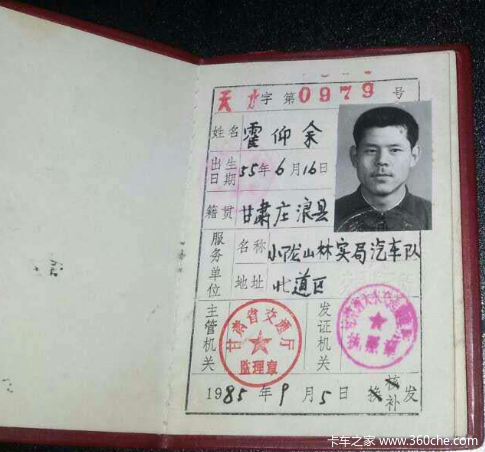 天水字第0979号
姓名 霍仰余
出生日期 55年6月16日
籍贯 甘肃庄浪县
服务单位 名称 小陇山林实局汽车队
地址 北道区
主管机关 甘肃省交通厅 监理章
发证机关
1985年9月5日 换核补发
卡车之家 www.360che.com